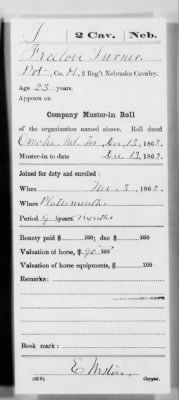 T 2 Cav. Neb.
Freelove Turner
Pvt, Co. H, 2 Reg't Nebraska Cavalry.
Age 23 years.
Appears on
Company Muster-in Roll
of the organization named above. Roll dated
Omaha, Neb. Ter Dec 13, 1862.
Muster-in to date Dec 13, 1862.
Joined for duty and enrolled:
When Nov 3, 1862.
Where Plattsmouth
Period 9 years months
Bounty paid $ 100; due $ 100
Valuation of horse, $ 90 100
Valuation of horse equipments, $ 100
Remarks:
Book mark:
(356) Copyist.